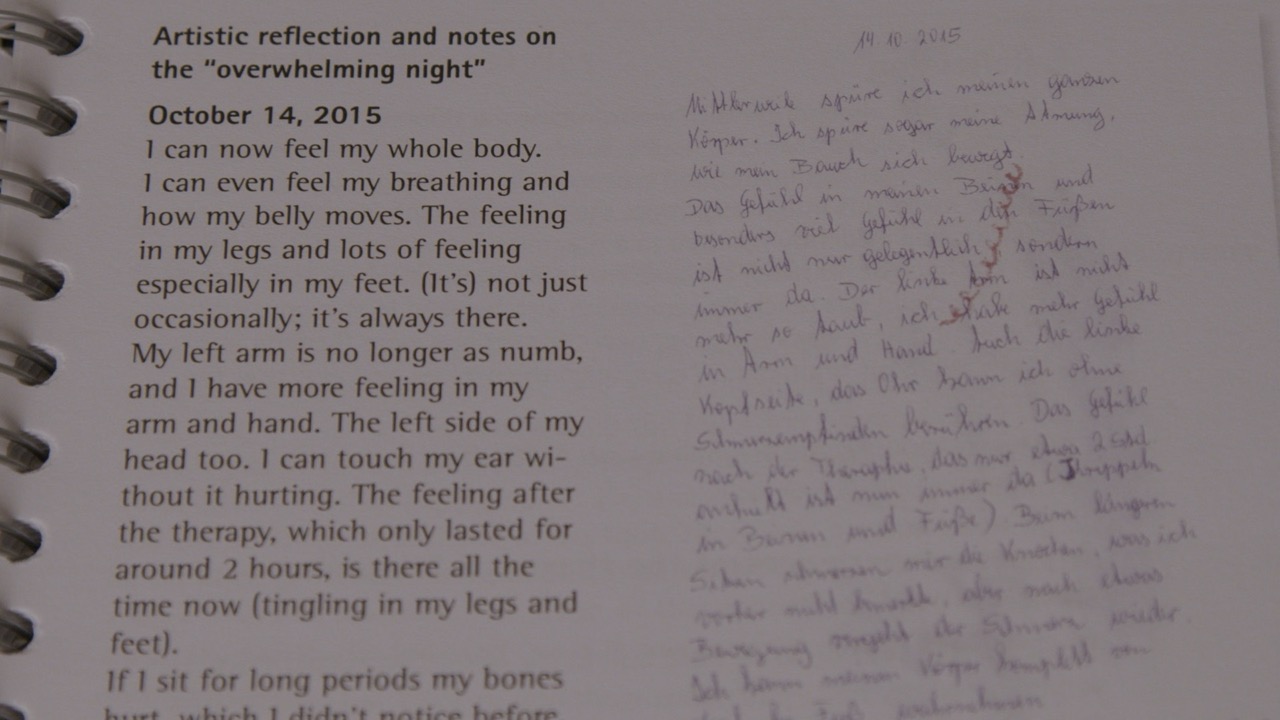 Artistic reflection and notes on
the “overwhelming night”
October 14, 2015
I can now feel my whole body.
I can even feel my breathing and
how my belly moves. The feeling
in my legs and lots of feeling
especially in my feet. (It’s) not just
occasionally; it’s always there.
My left arm is no longer as numb,
and I have more feeling in my
arm and hand. The left side of my
head too. I can touch my ear wi-
thout it hurting. The feeling after
the therapy, which only lasted for
around 2 hours, is there all the
time now (tingling in my legs and
feet).
If I sit for long periods my bones
hurt, which I didn’t notice before
14.10.2015
Mittlerweile spüre ich meinen ganzen
Körper. Ich spüre sogar meine Atmung,
wie mein Bauch sich bewegt.
Das Gefühl in meinen Beinen und
besonders viel Gefühl in den Füßen
ist nicht nur gelegentlich, sondern
immer da. Der linke Arm ist nicht
mehr so taub, ich habe mehr Gefühl
in Arm und Hand. Auch die linke
Kopfseite, das Ohr kann ich ohne
Schmerzempfinden berühren. Das Gefühl
nach der Therapie, das nur etwa 2 Std
ist nun immer da (
in Beinen und Füße) Beim längeren
Sitzen schmerzen mir die Knochen, was ich
vorher nicht bemerkte, aber nach etwas
Bewegung vergeht der Schmerz wieder.
Ich kann meinen Körper komplett von